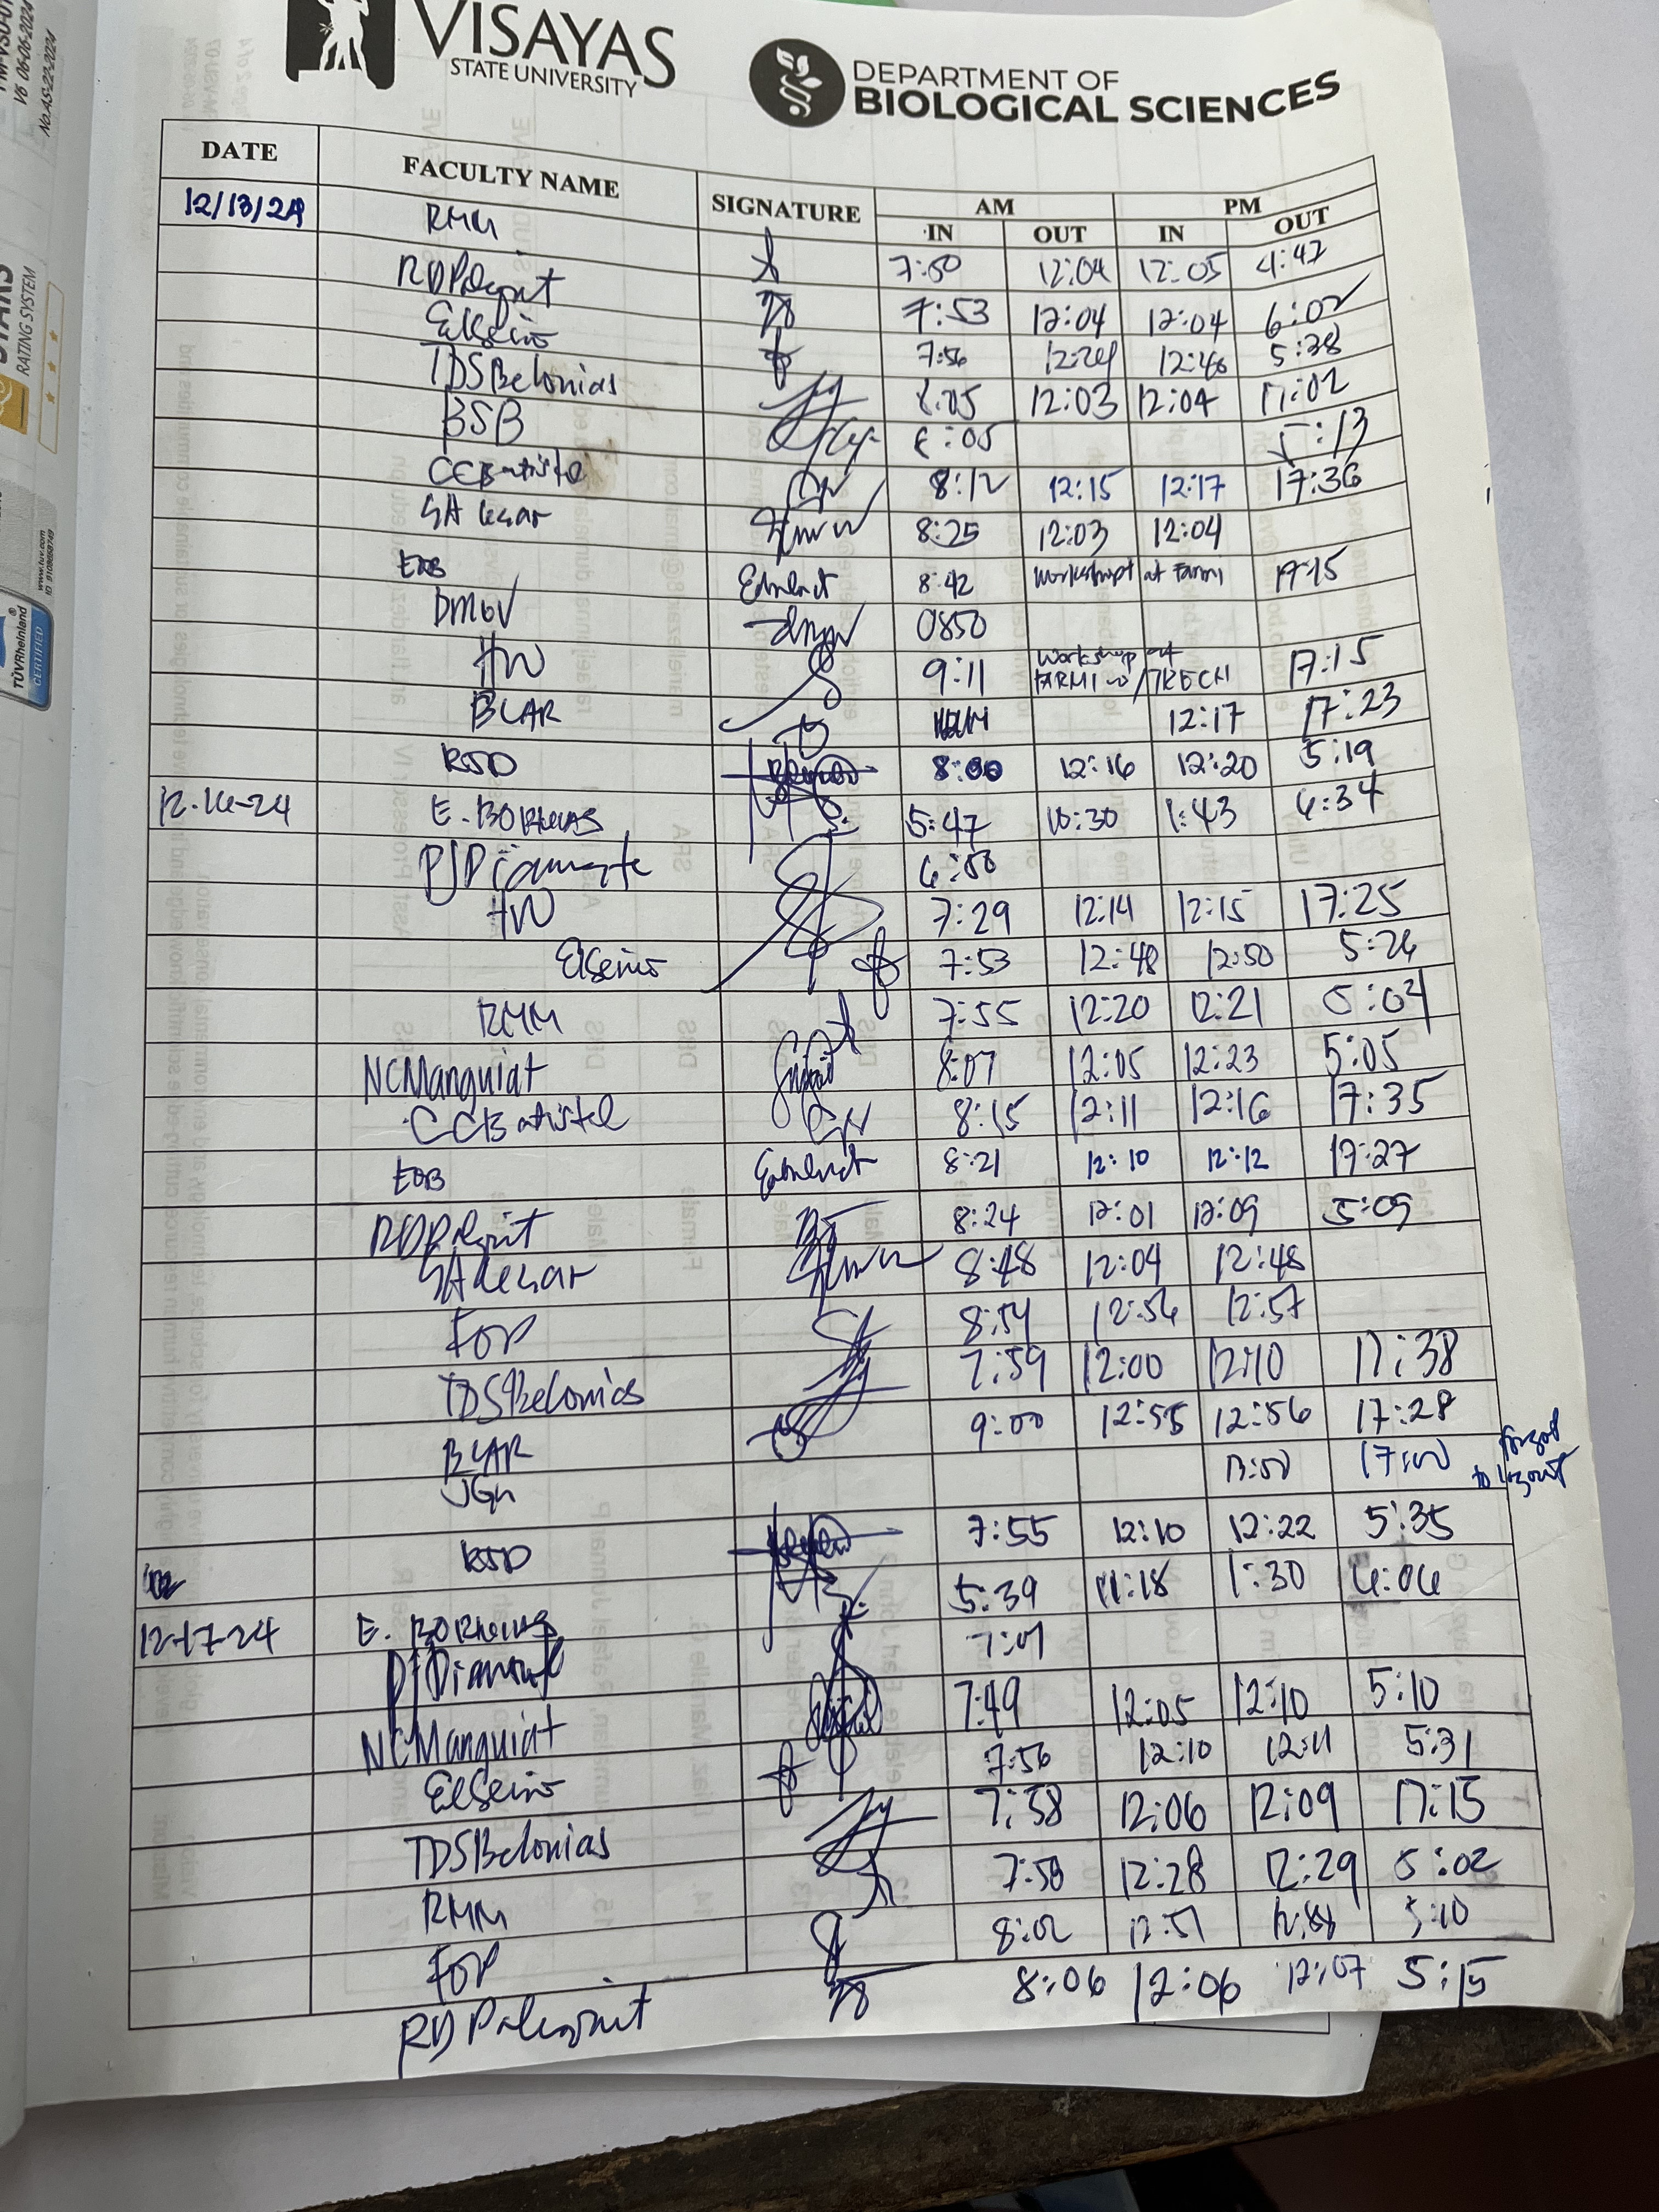 VISAYAS
STATE UNIVERSITY
DEPARTMENT OF
BIOLOGICAL SCIENCES
V6 06-06-2024
No.AS-22-2024
RATING SYSTEM
www.tuv.com
TÜVRheinland
CERTIFIED
DATE FACULTY NAME SIGNATURE AM PM
IN OUT IN OUT
12/13/24 RMM 7:50 12:04 12:05 4:42
7:53 12:04 12:04 6:02
7:56 12:24 12:46 5:38
TDSBelonias 8:05 12:03 12:04 17:02
BSB 8:05 5:13
CCBatistel 8:12 12:15 12:17 17:36
8:25 12:03 12:04
EOB 8:42 Workshop at 17:15
DMGV 0850
HW 9:11 Workshop at FARMI 17:15
BLAR 12:17 17:23
RSD 8:00 12:16 12:20 5:19
12-16-24 E. 5:47 10:30 1:43 6:34
PJDiamante 6:50
HW 7:29 12:14 12:15 17:25
7:53 12:48 12:50 5:26
RMM 7:55 12:20 12:21 5:04
NCManguiat 8:07 12:05 12:23 5:05
CCBatistel 8:15 12:11 12:16 17:35
EOB 8:21 12:10 12:12 17:27
8:24 12:01 12:09 5:09
8:48 12:04 12:48
FOP 8:54 12:56 12:57
TDSBelonias 7:59 12:00 12:10 17:38
BLAR 9:00 12:55 12:56 17:28
JGM 13:00 17:00 forgot to logout
RSD 7:55 12:10 12:22 5:35
12-17-24 E. 5:39 11:18 1:30 6:06
PJDiamante 7:01
NCManguiat 7:49 12:05 12:10 5:10
7:56 12:10 12:11 5:31
TDSBelonias 7:58 12:06 12:09 17:15
RMM 7:58 12:28 12:29 5:02
FOP 8:02 12:57 5:10
8:06 12:06 12:07 5:15